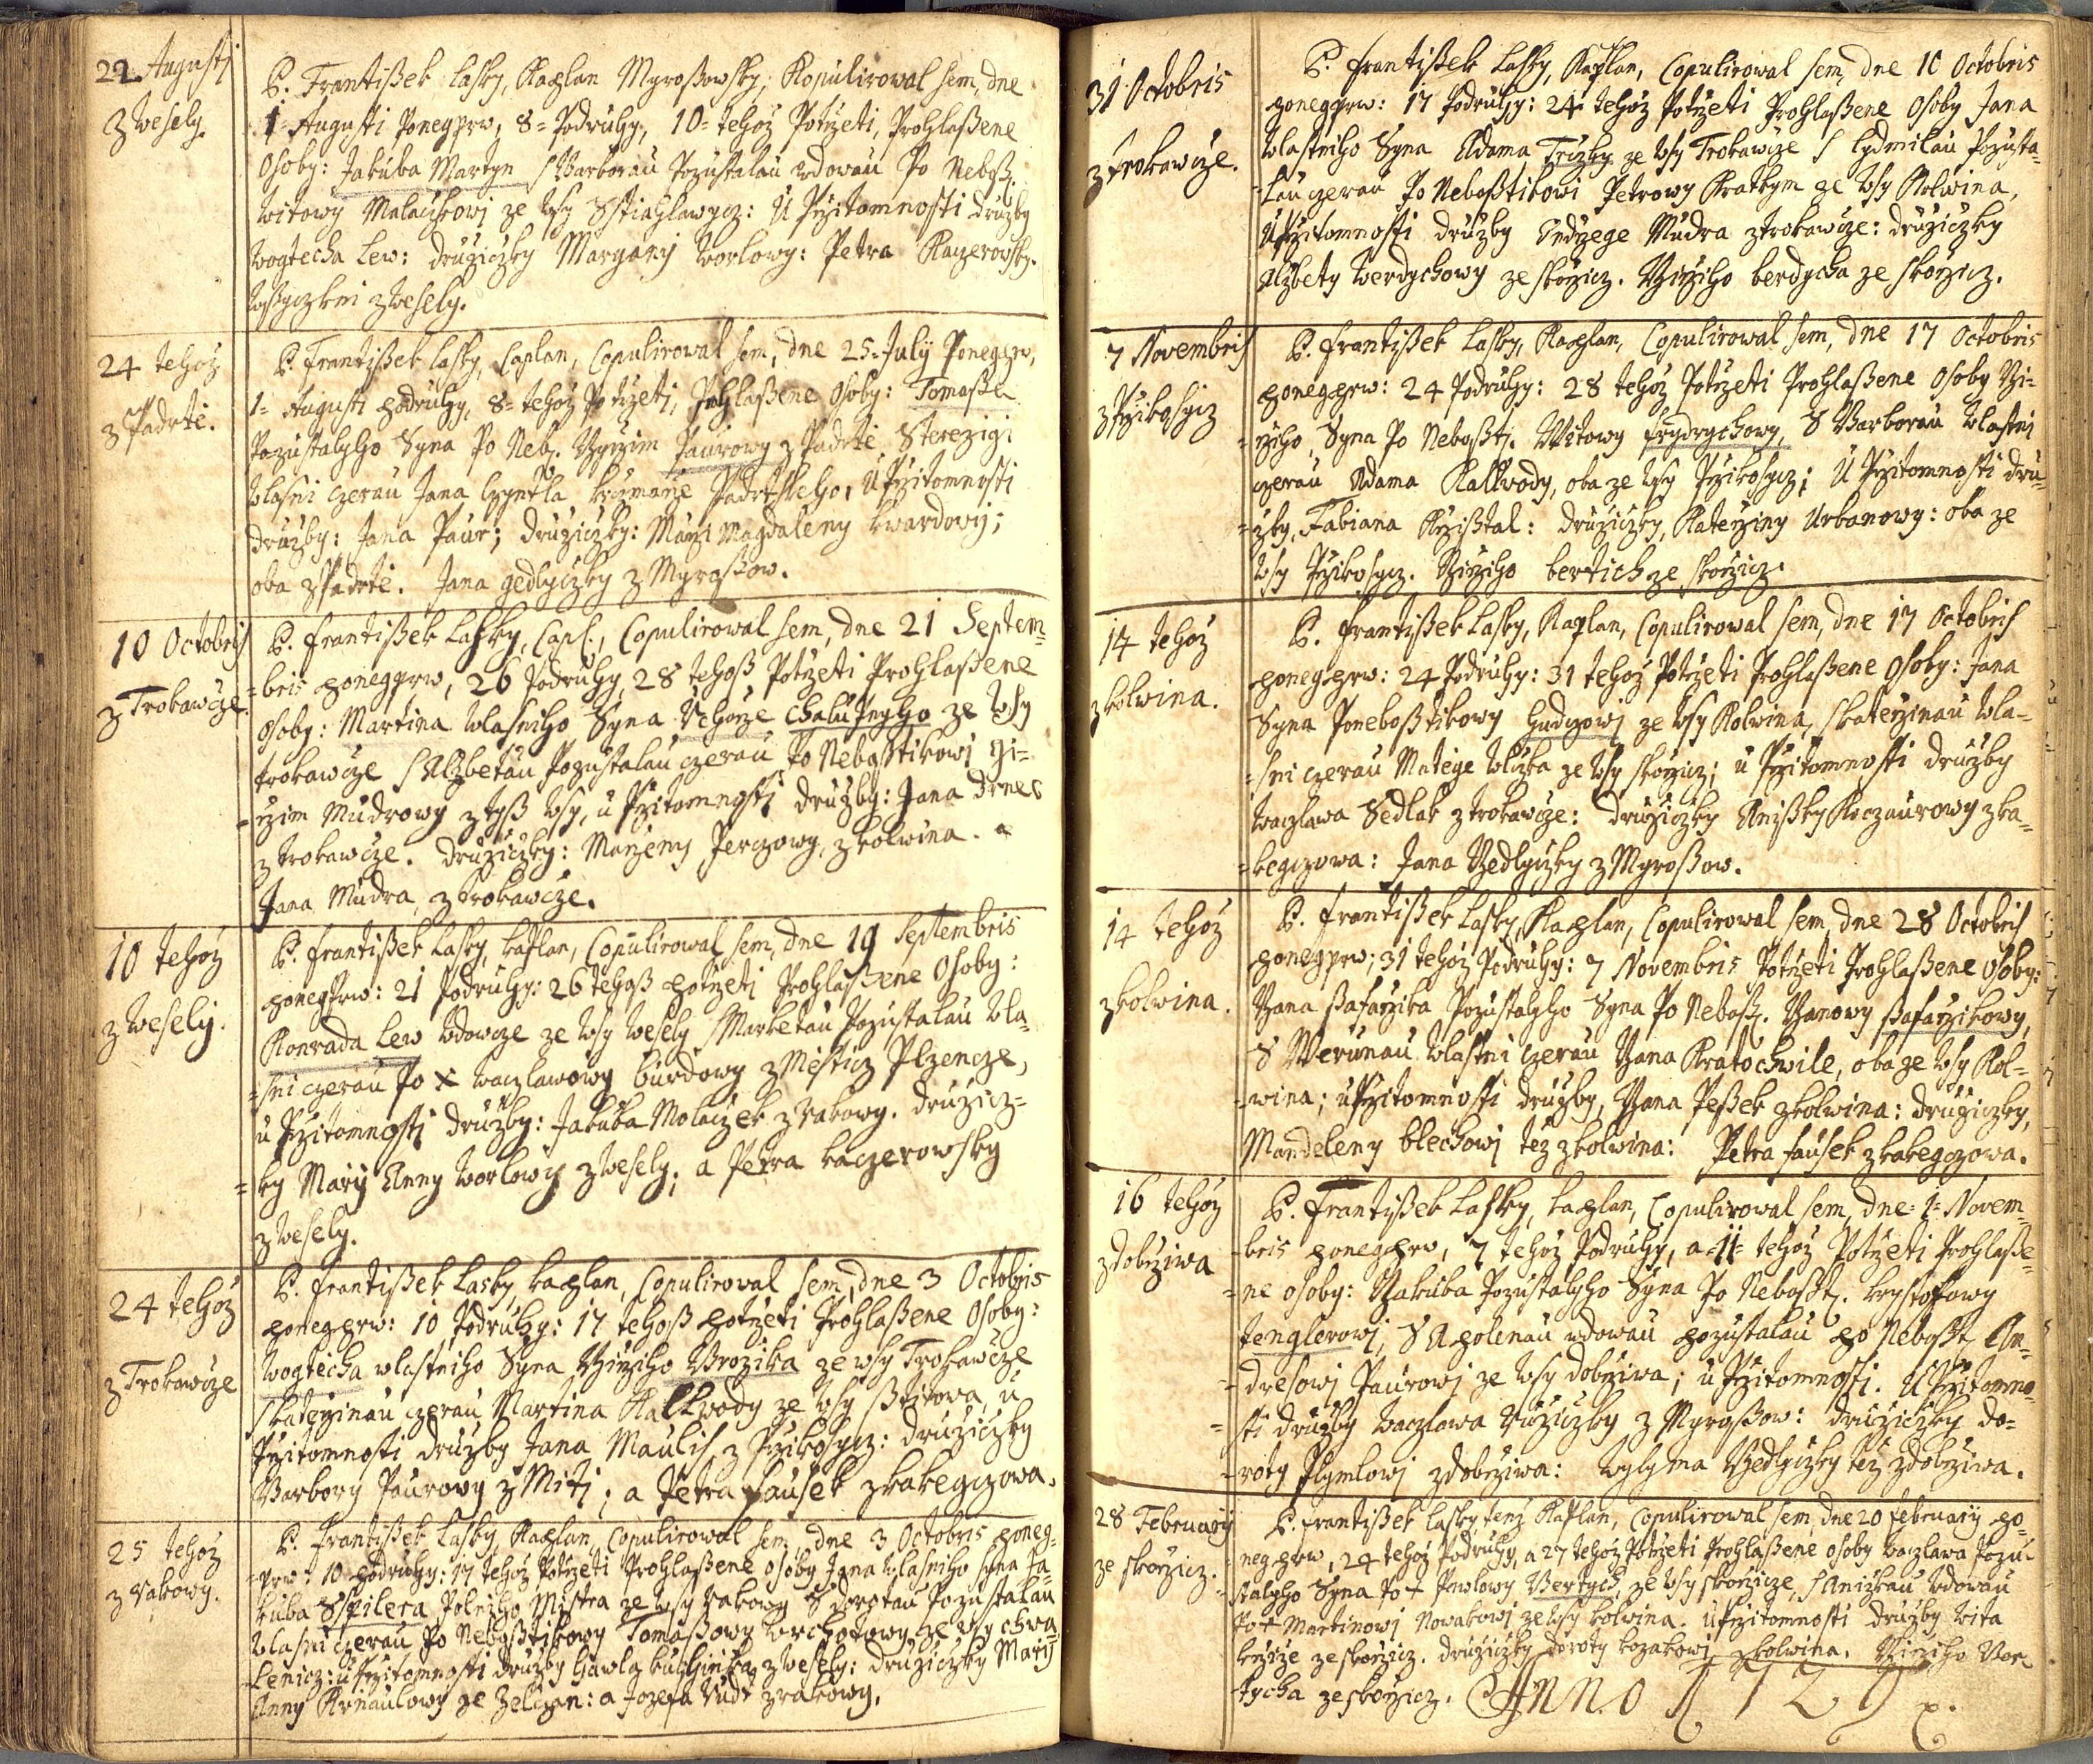 22 Augusti
z Wesely
P. Frantißek Lasky, Kaplan Myroßowsky, Kopulirowal sem, dne
1= Augusti Ponegprw, 8= Podruhy, 10= tehoż Potrzeti, Prohlaßene
Osoby: Jakuba Martyn s Barborau Pozustalau wdowau Po Neboß.
Witowy ze Wsy U Przitomnosti drużby
Wogtecha Lew: drużiczky Worlowy: Petra Kaczerowsky.
z Wesely.
24 tehoż
z Padrtě.
P. Frantißek Lasky, Caplan, Copulirowal sem, dne 25= July Ponegprw,
1= Augusti podruhy, 8= tehoż Potrzeti, Prohlaßene Osoby: Tomaße
Pozustalyho Syna Po Neb. Paurowy z Padrtě, S Terezigi
Wlasni czerau Jana U Przitomnosti
drużby: Jana Paur; drużiczky: Magdaleny kwardowy;
oba z Padrtě. Jana gedlyczky z Myroßow.
10 Octobris
z Trokawcze.
P. Frantißek Lasky, Capl., Copulirowal sem, dne 21 Septem=
=bris ponegprw, 26 Podruhy, 28 tehoß Potrzeti Prohlaßene
Osoby: Martina Wlasniho Syna Rehorze ze Wsy
trokawcze s Alżbetau Pozustalau czerau Po Neboßtikowj Gi=
=rzim Mudrowy z tyß Wsy, u Przitomnosti drużby: Jana drnec
z trokawcze. drużiczky: Marzeny Perczowy, z kolwina. a
Jana Mudra, z trokawcze.
10 tehoż
z Wesely.
P. Frantißek Lasky, kaplan, Copulirowal sem, dne 19 Septembris
ponegprw: 21 Podruhy: 26 tehoß potrzeti Prohlaßene Osoby:
Konrada Lew Wdowcze ze Wsy Wesely s Marketau Pozustalau Wla=
=sni czerau Po x Waczlawowy burdowy z Plzencze,
u Przitomnosti drużby: Jakuba Molaczek z Rakowy. drużicz=
=ky Mary Anny Worlowy z Wesely; a Petra kaczerowsky
z Wesely.
24 tehoż
z Trokawcze
P. Frantißek Lasky, kaplan, Copulirowal sem, dne 3 Octobris
ponegprw: 10 Podruhy: 17 tehoß potrzeti Prohlaßene Osoby:
Wogtecha wlastniho Syna Girziho Brozika ze wsy Trokawcze
s katerzinau czerau Martina Kalkwody ze Wsy u
Przitomnosti drużby Jana Maulis z Przikosycz: drużiczky
Barbory Paurowy z Miti; a Petra fausek z kakegczowa.
25 tehoż
z Rakowy.
P. Frantißek Lasky, Kaplan, Copulirowal sem, dne 3 Octobris poneg=
=prw: 10 podruhy: 17 tehoż Potrzeti Prohlaßene osoby Jana Wlasniho Syna Ja=
kuba Spilera, Mistra ze Wsy Rakowy S dorotau Pozustalau
Wlasni czerau Po Neboßtikowy Tomaßowy ze Wsy chwa=
lenicz: u Przitomnosti drużby z Wesely: drużiczky Mary
Anny ze Zelczan: a Jozefa z Rakowy.
31 Octobris
z trokawcze.
P. Frantißek Lasky, Kaplan, Copulirowal sem, dne 10 Octobris
ponegprw: 17 Podruhy: 24 tehoż Potrzeti Prohlaßene Osoby Jana
Wlastniho Syna Adama Trczky ze Wsy Trokawcze s lydmilau Pozusta=
=lau czerau Po Neboßtikowi Petrowy Kratkym ze Wsy Kolwina,
U Przitomnosti drużby Mudra z trokawcze: drużiczky
Alzbety Werdychowy ze skorzicz. Girziho berdycha ze skorzicz.
7 Novembris
z Przikosycz
P. Frantißek Lasky, Kaplan, Copulirowal sem, dne 17 Octobris
ponegprw: 24 Podruhy: 28 tehoż Potrzeti Prohlaßene Osoby Gi=
=rziho, Syna Po Neboßt. Witowy frydrychowy, S Barborau Wlastni
czerau Adama Kalkvody, oba ze Wsy Przikosycz; U Przitomnosti dru=
=żby, Fabiana Krzißtal: drużiczky, Katerziny Urbanowy: oba ze
Wsy Przikosycz. Girziho bertich ze skorzicz.
14 tehoż
z kolwina.
P. Frantißek Lasky, Kaplan, Copulirowal sem, dne 17 Octobris
poneg prw: 24 Podruhy: 31 tehoż Potrzeti Prohlaßene Osoby: Jana
Syna Poneboßtikowy ze Wsy Kolwina, s katerzinau Wla=
=sni czerau Matege Wlczka ze Wsy skorzicz; u Przitomnosti drużby
Waczlawa Sedlak z trokawcze: drużiczky Anißky z ka=
=kegczowa: Jana Gedlyczky z Myroßow.
14 tehoż
z kolwina.
P. Frantißek Lasky, Kaplan, Copulirowal sem, dne 28 Octobris
ponegprw; 31 tehoż Podruhy: 7 Novembris Potrzeti Prohlaßene Osoby:
Jana ßafarzika Pozustalyho Syna Po Neboßt. Janowy ßafarzikowy,
S Werunau Wlastni czerau Jana Kratochwile, oba ze Wsy Kol=
=wina; u Przitomnosti drużby, Jana Peßek z kolwina: drużiczky,
Mandeleny blechowj też z kolwina: Petra fausek z kakegczowa.
16 tehoż
z dobrziwa
P. Frantißek Lasky, kaplan, Copulirowal sem, dne= 1= Novem=
=bris ponegprw, 7 tehoż Podruhy, a 11= tehoż Potrzeti Prohlaße=
=ne osoby: Jakuba Pozustalyho Syna Po Neboßt. krystofowy
tenglerowj, S Apolenau wdowau pozustalau po Neboßt. An=
=dresowj Paurowj ze Wsy dobrziwa; u Przitomnosti. U Przitomno=
=sti drużby Waczlawa rużiczky z Myroßow: drużiczky do=
=roty z dobrziwa: Wylyma Gedlyczky też z dobrziwa.
28 February
ze skorzicz.
P. Frantißek Lasky, tenż Kaplan, Copulirowal sem, dne 20 february po=
neg prw, 24 tehoż Podruhy, a 27 tehoż Potrzeti Prohlaßene osoby Waczlawa Pozu=
stalyho Syna Po + Pawlowy Bertych, ze Wsy skorzicze, s Aniżkau Wdowau
Po + Martinowj Nowakowj ze Wsy kolwina. u Przitomnosti drużby Wita
ze skorzicz. drużiczky doroty kozakowj z kolwina. Girziho Ber=
tycha ze skorzicz. Anno 1729